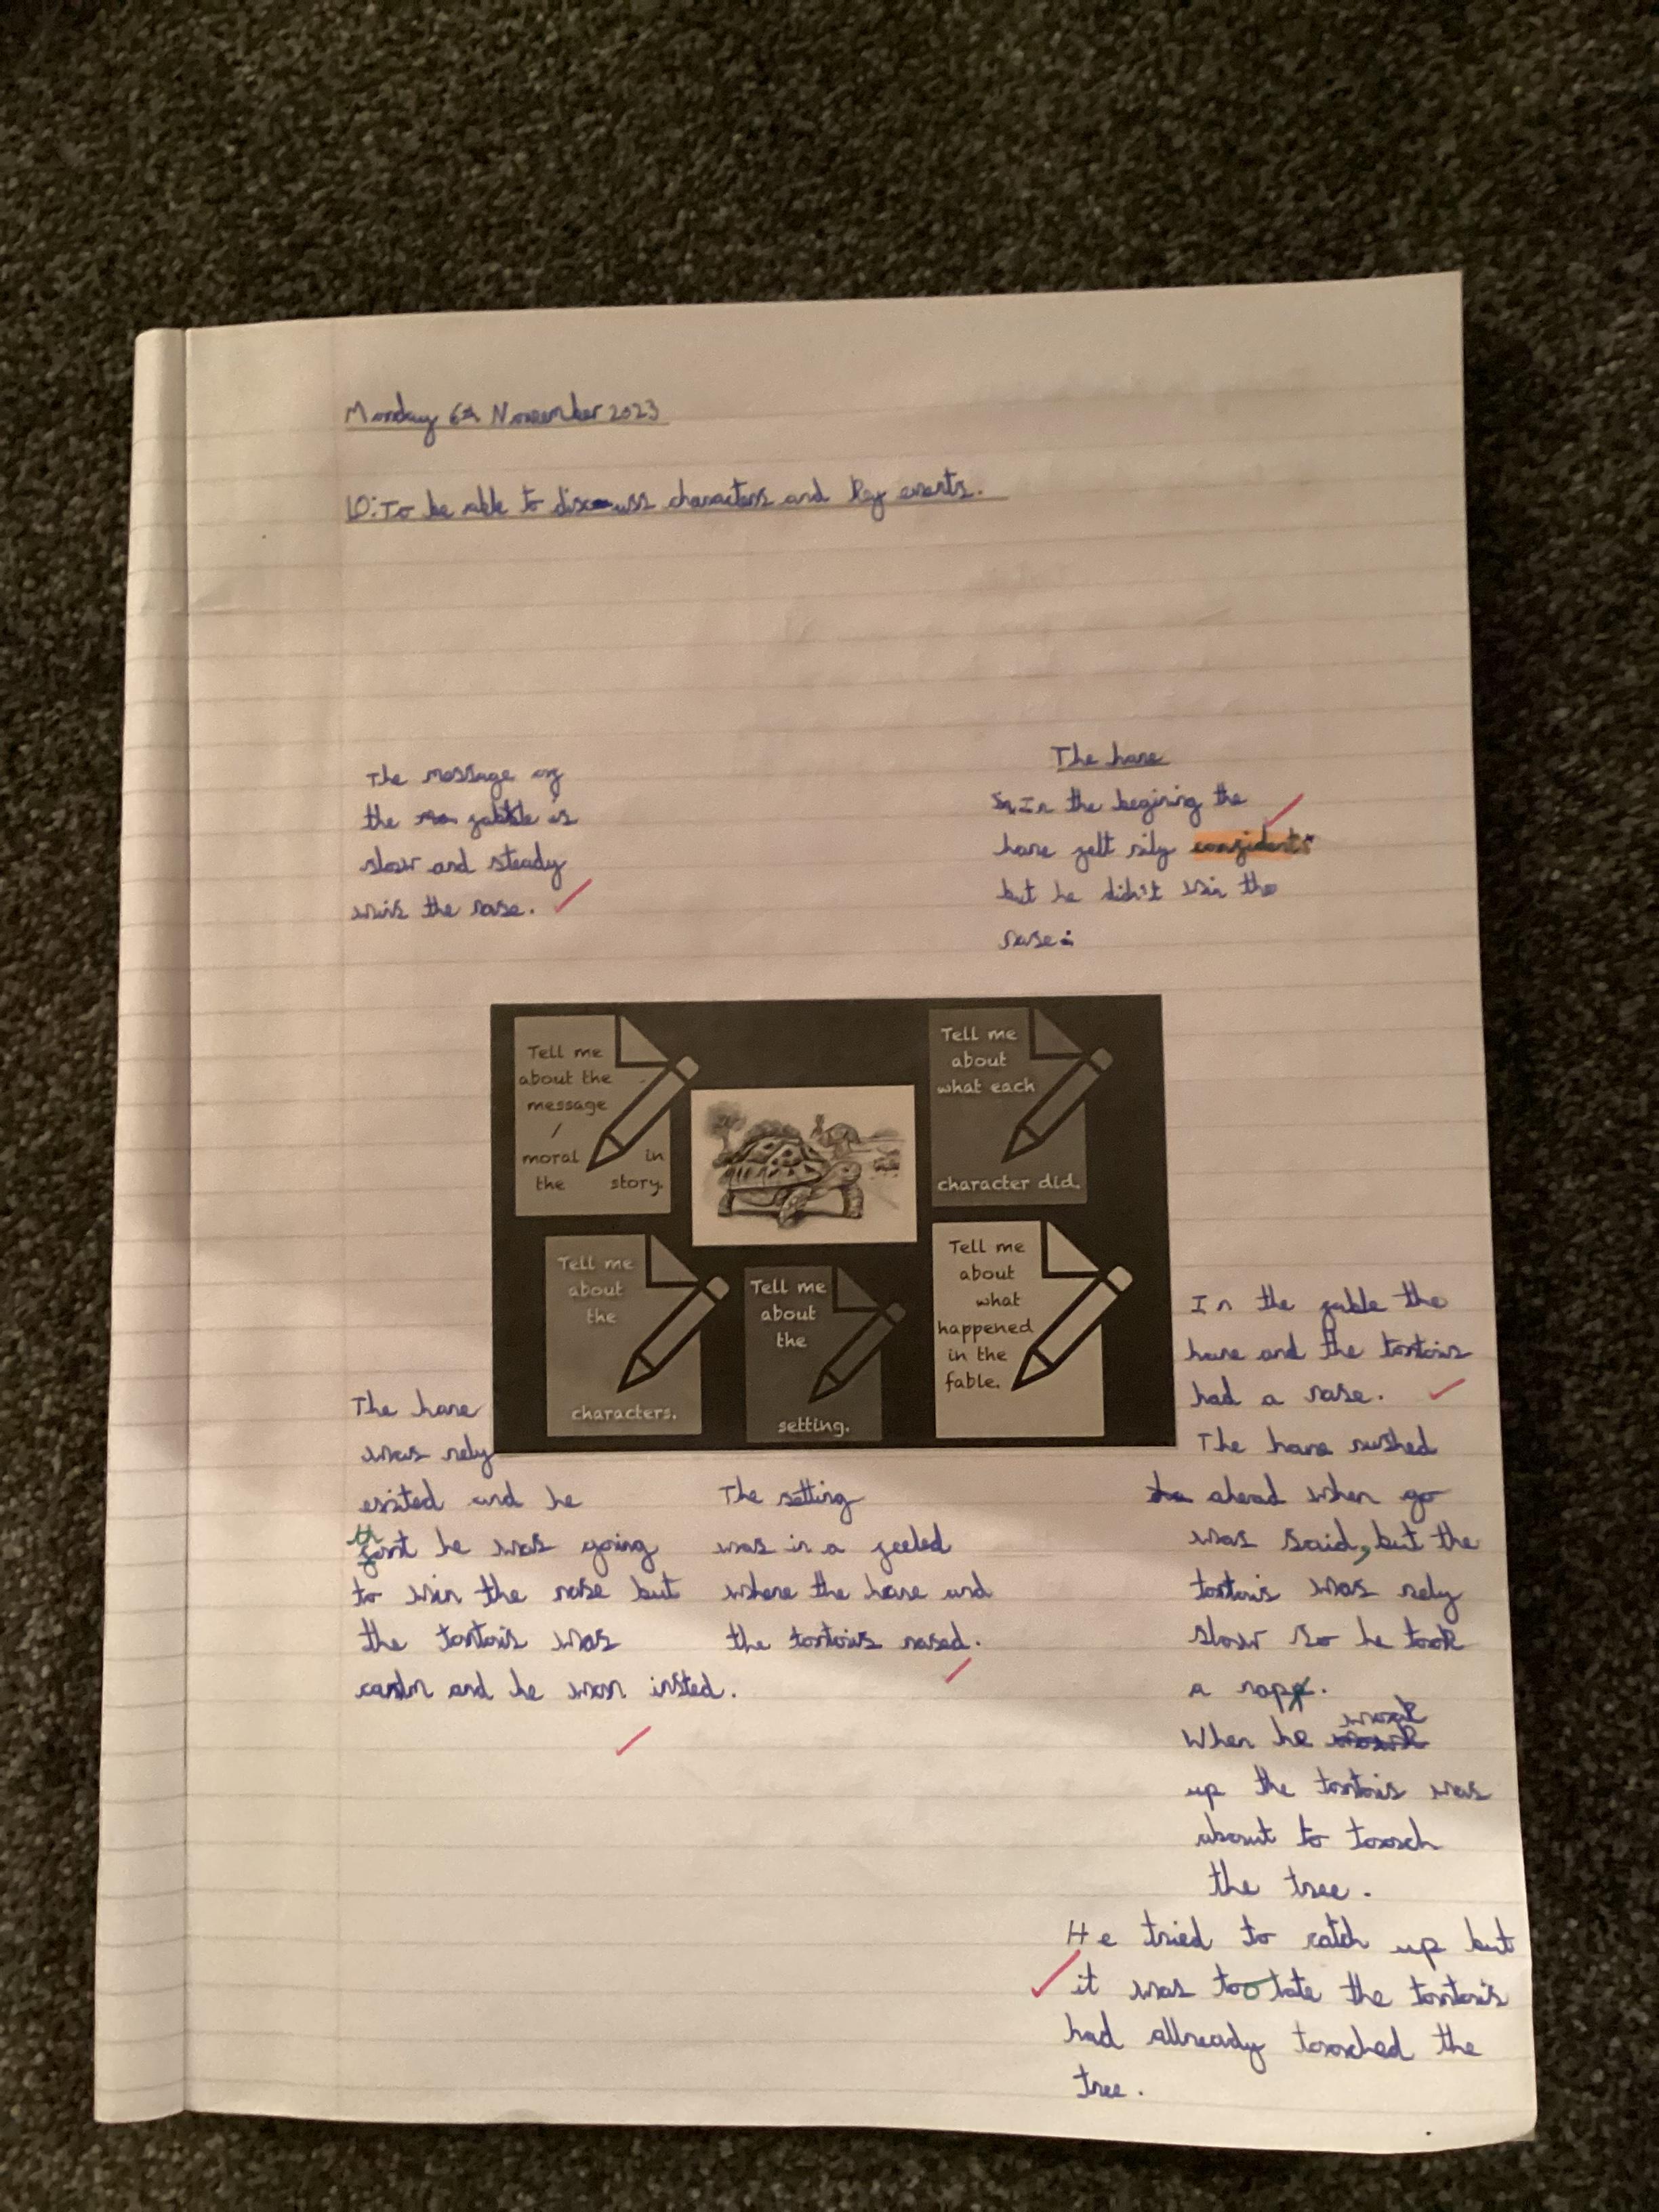 Monday 6th November 2023
LO: To be able to discuss characters and key events.
The message of
the fable is
slow and steady
wins the rase.
The hare
In the begining the
hare felt rily confident
but he didn't win the
rase.
Tell me
about the
message
/
moral in
the story.
Tell me
about
what each
character did.
Tell me
about
the
characters.
Tell me
about
the
setting.
Tell me
about
what
happened
in the
fable.
The hare
was rely
exited and he
he was going
to win the rase but
the tortois was
and he won insted.
The setting
was in a feeled
where the hare and
the tortois rased.
In the fable the
hare and the tortois
had a rase.
The hare rushed
ahead when go
was said, but the
tortois was rely
slow so he took
a nap.
When he woak
up the tortois was
about to tooch
the tree.
He tried to catch up but
it was too late the tortois
had allready tooched the
tree.